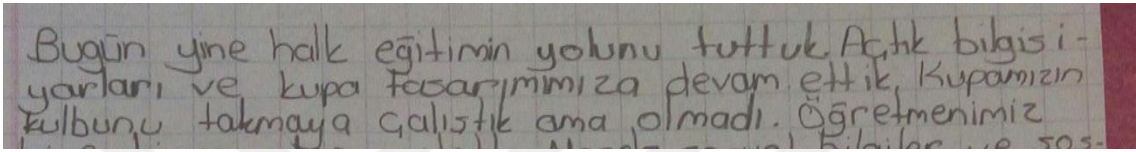 Bugün yine halk eğitimin yolunu tuttuk. Açtık bilgisi-
yarları ve kupa tasarımımıza devam ettik. Kupamızın
kulbunu takmaya çalıştık ama olmadı. Öğretmenimiz